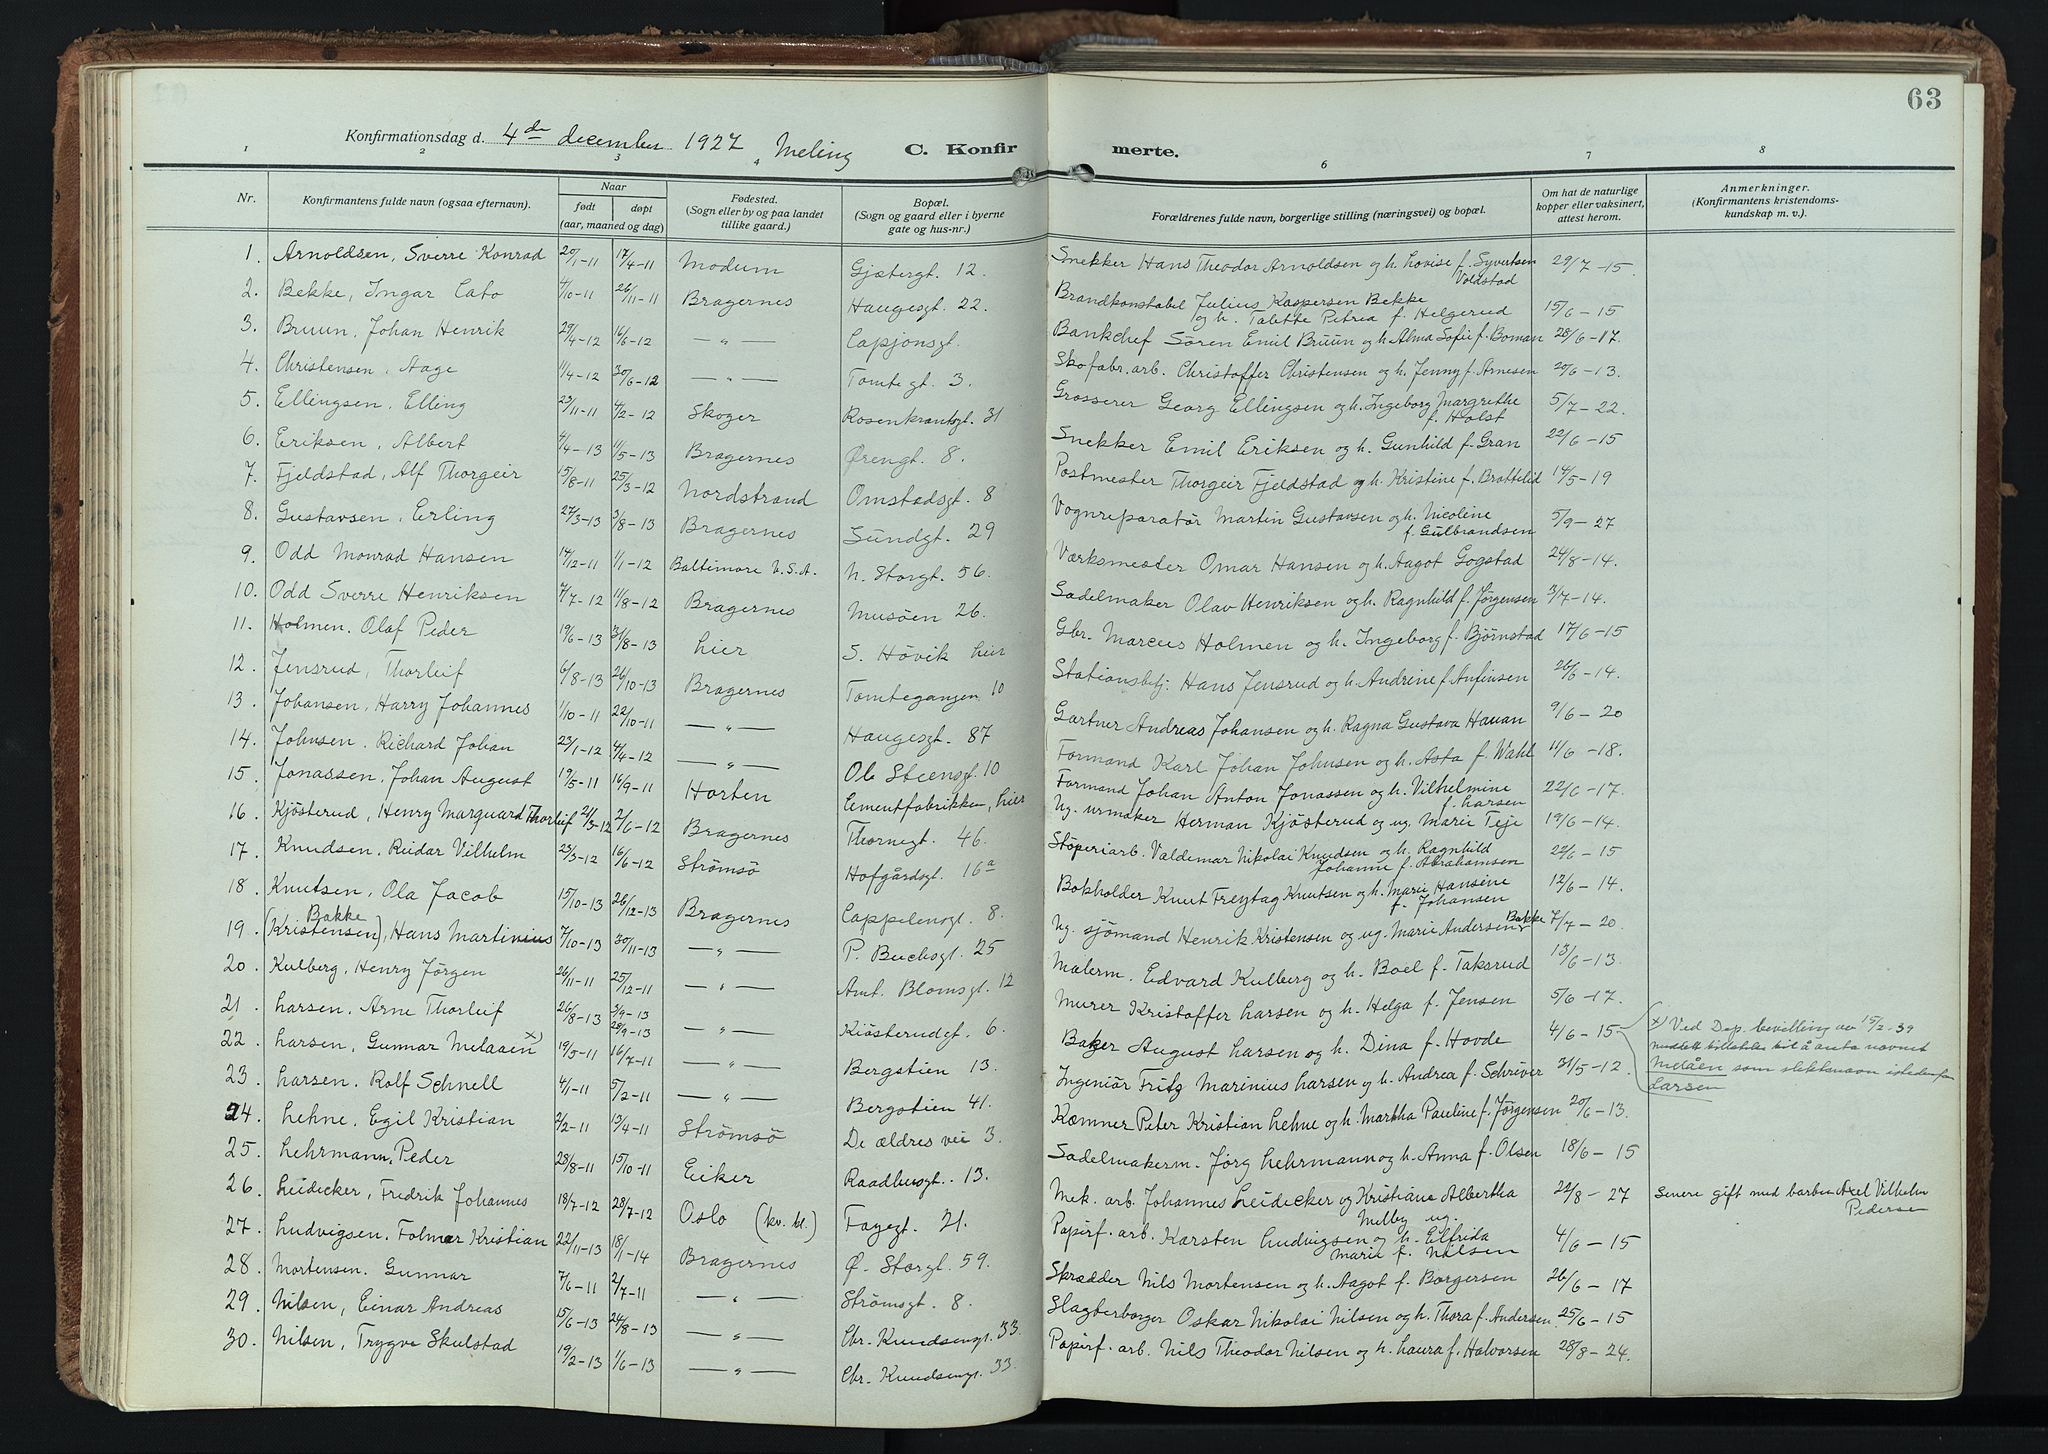 63
Konfirmationsdag d. 4de december 1927 Meling C. Konfirmerte.
1 2 3 4 6 7 8
Nr. | Konfirmantens fulde navn (ogsaa efternavn). | Naar født døpt (aar, maaned og dag) | Fødested. (Sogn eller by og paa landet tillike gaard.) | Bopæl. (Sogn og gaard eller i byerne gate og hus-nr.) | Forældrenes fulde navn, borgerlige stilling (næringsvei) og bopæl. | Om hat de naturlige kopper eller vaksinert, attest herom. | Anmerkninger. (Konfirmantens kristendoms-kundskap m. v.)
1. Arnoldsen, Sverre Konrad 20/1-11 17/4-11 Modum Gjætergt. 12. Snekker Hans Theodor Arnoldsen og h. Lovise f. Syvertsen Voldstad 29/7-15.
2. Bekke, Ingar Cato 4/10-11 26/11-11 Bragernes Haugesgt. 22. Brandkonstabel Julius Kaspersen Bekke og h. Talette Petrea f. Helgerud 15/6-15
3. Bruun, Johan Henrik 29/4-12 16/6-12 —„— Capjonsgt. Bankchef Sören Emil Bruun og h. Alma Sofie f. Boman 28/6-17.
4. Christensen, Aage 11/4-12 30/6-12 —„— Tomtegt. 3. Skofabr. arb. Christoffer Christensen og h. Jenny f. Arnesen 20/6-13.
5. Ellingsen, Elling 23/11-11 4/2-12 Skoger Rosenkrantsgt. 31 Grosserer Georg Ellingsen og h. Ingeborg Margrethe f. Holst 5/7-22.
6. Eriksen, Albert 4/4-13 11/5-13 Bragernes Ørengt. 8. Snekker Emil Eriksen og h. Gunhild f. Gran 22/6-15
7. Fjeldstad, Alf Thorgeir 15/8-11 25/3-12 Nordstrand Omstadsgt. 8 Postmester Thorgeir Fjeldstad og h. Kristine f. Brattelid 14/5-19
8. Gustavsen, Erling 27/3-13 3/8-13 Bragernes Sundgt. 29 Vognreparatör Martin Gustavsen og h. Nicoline f. Gulbrandsen 5/9-27
9. Odd Monrad Hansen 14/12-11 1/1-12 Baltimore U.S.A. N. Storgt. 56. Værksmester Omar Hansen og h. Aagot Gogstad 24/8-14.
10. Odd Sverre Henriksen 7/7-12 11/8-12 Bragernes Musöen 26. Sadelmaker Olav Henriksen og h. Ragnhild f. Jörgensen 3/7-14.
11. Holmen, Olaf Peder 19/6-13 31/8-13 Lier S. Hövik Lier Gbr. Marcus Holmen og h. Ingeborg f. Björnstad 17/6-15
12. Jensrud, Thorleif 6/8-13 26/10-13 Bragernes Tomtegangen 10 Stationsbetj. Hans Jensrud og h. Andrine f. Anfinsen 26/6-14.
13. Johansen, Harry Johannes 1/10-11 22/10-11 —„— Haugesgt. 87 Gartner Andreas Johansen og h. Ragna Gustava Hauan 9/6-20
14. Johnsen, Richard Johan 23/1-12 4/4-12 —„— Ole Steensgt. 10 Formand Karl Johan Johnsen og h. Asta f. Wahl 11/6-18.
15. Jonassen, Johan August 19/5-11 16/9-11 Horten Cementfabrikken, Lier Formand Johan Anton Jonassen og h. Vilhelmine f. Larsen 22/6-17.
16. Kjösterud, Henry Marquard Thorleif 21/3-12 2/6-12 Bragernes Thornegt. 46. Ug. urmaker Herman Kjösterud og ug. Marie Teje 19/6-14.
17. Knudsen, Reidar Vilhelm 23/3-12 16/6-12 Strömsö Hofgårdsgt. 16a Stöperiarb. Valdemar Nikolai Knudsen og h. Ragnhild Johanne f. Abrahamsen 22/6-15
18. Knutsen, Ola Jacob 15/10-13 26/12-13 Bragernes Cappelensgt. 8. Bokholder Knut Freytag Knutsen og h. Marie Hansine f. Johansen 12/6-14.
19. (Kristensen) Bakke, Hans Martinius 7/10-13 30/11-13 —„— P. Buchsgt. 25 Ug. sjömand Henrik Kristensen og ug. Marie Andersen Bakke 7/7-20
20. Kulberg, Henry Jörgen 26/11-11 25/12-11 —„— Amt. Blomsgt. 12 Malerm. Edvard Kulberg og h. Boel f. Taksrud 13/6-13.
21. Larsen, Arne Thorleif 26/8-13 28/9-13 —„— Kiösterudgt. 6. Murer Kristoffer Larsen og h. Helga f. Jensen 5/6-17.
22. Larsen, Gunnar Melaaen x) 19/5-11 16/7-11 —„— Bergstien 13. Baker August Larsen og h. Dina f. Hovde 4/6-15 x) Ved Dep. bevilling av 15/2-39
til å anta navnet
Melåen som slektsnavn istedenfor
Larsen
23. Larsen, Rolf Schnell 4/1-11 5/2-11 —„— Bergstien 41. Ingeniör Fritz Marinius Larsen og h. Andrea f. Schröver 31/5-12.
24. Lehne, Egil Kristian 2/2-11 13/4-11 Strömsö De ældres vei 3. Kæmner Peter Kristian Lehne og h. Martha Pauline f. Jörgensen 20/6-13.
25. Lehrmann, Peder 28/8-11 15/10-11 Eiker Raadhusgt. 13. Sadelmakerm. Jörg Lehrmann og h. Anna f. Olsen 18/6-15
26. Leidecker, Fredrik Johannes 18/7-12 28/7-12 Oslo (kv. bl.) Fagegt. 21. Mek. arb. Johannes Leidecker og Kristiane Albertha Melby ug. 22/8-27 Senere gift med Axel Vilhelm Pedersen
27. Ludvigsen, Folmer Kristian 22/11-13 18/1-14 Bragernes Ø. Storgt. 59. Papirf. arb. Karsten Ludvigsen og h. Elfrida Marie f. Nilsen 4/6-15
28. Mortensen, Gunnar 7/6-11 2/7-11 —„— Strömsgt. 8. Skrædder Nils Mortensen og h. Aagot f. Borgersen 26/6-17
29. Nilsen, Einar Andreas 15/6-13 24/8-13 —„— Chr. Knudsensgt. 33. Slagterborger Oskar Nikolai Nilsen og h. Thora f. Andersen 25/6-15
30. Nilsen, Trygve Skulstad 19/2-13 1/6-13 —„— Chr. Knudsensgt. 33. Papirf. arb. Nils Theodor Nilsen og h. Laura f. Halvorsen 28/8-24.